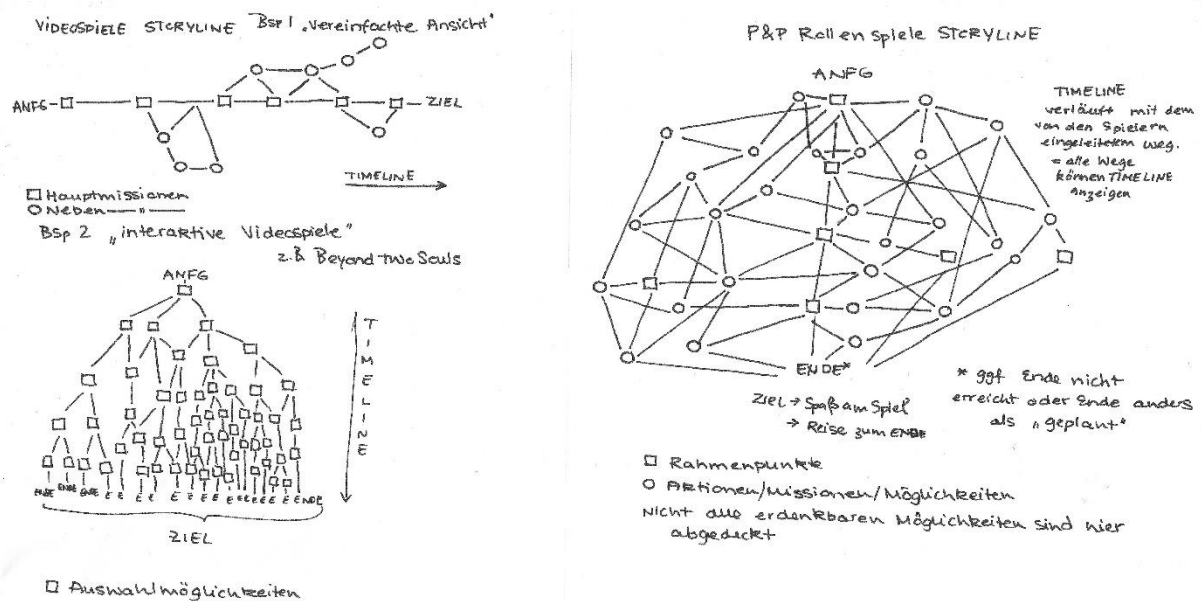 VIDEOSPIELE STORYLINE Bsp 1 „Vereinfachte Ansicht"
ANFG
ZIEL
TIMELINE
□ Hauptmissionen
○ Neben — " —
Bsp 2 „interaktive Videospiele"
z.B Beyond two Souls
ANFG
TIMELINE
ENDE ENDE ENDE E E E E E E E E E E E E E E ENDE
ZIEL
□ Auswahlmöglichkeiten
P&P Rollenspiele STORYLINE
ANFG
TIMELINE
verläuft mit dem
von den Spielern
eingeleitetem Weg.
= alle Wege
können TIMELINE
anzeigen
ENDE*
ZIEL → Spaß am Spiel
→ Reise zum ENDE
* ggf Ende nicht
erreicht oder Ende anders
als „geplant"
□ Rahmenpunkte
○ Aktionen/Missionen/Möglichkeiten
Nicht alle erdenkbaren Möglichkeiten sind hier
abgedeckt